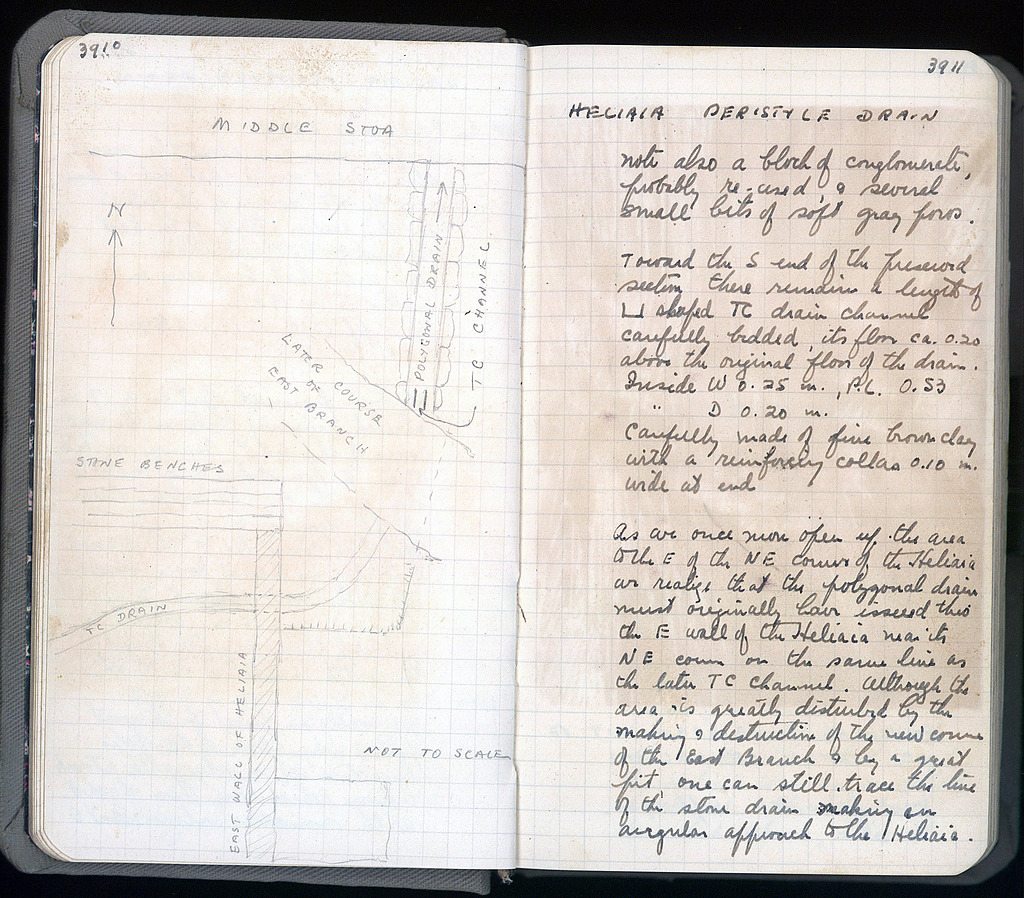 3910
MIDDLE STOA
N
POLYGONAL DRAIN
TC CHANNEL
LATER COURSE
OF
EAST BRANCH
STONE BENCHES
TC DRAIN
EAST WALL OF HELIAIA
NOT TO SCALE
3911
HELIAIA PERISTYLE DRAIN
note also a block of conglomerate,
probably re-used & several
small bits of soft gray poros.
Toward the S end of the preserved
section there remains a length of
⊔ shaped TC drain channel
carefully bedded, its floor ca. 0.20
above the original floor of the drain.
Inside W 0.25 m., P.L. 0.53
" D 0.20 m.
Carefully made of fine brown clay
with a reinforcing collar 0.10 m.
wide at end
As we once more open up the area
to the E of the NE corner of the Heliaia
we realize that the polygonal drain
must originally have issued thro
the E wall of the Heliaia near its
NE corner on the same line as
the later TC channel. Although the
area is greatly disturbed by the
making & destruction of the new course
of the East Branch & by a great
pit, one can still trace the line
of the stone drain making an
angular approach to the Heliaia.